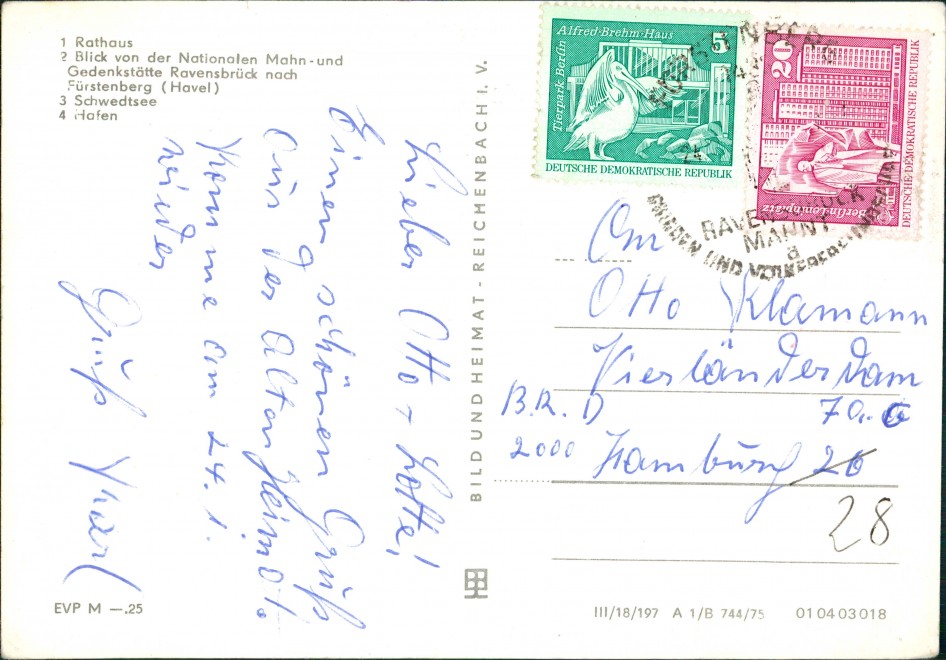 1 Rathaus
2 Blick von der Nationalen Mahn-und
Gedenkstätte Ravensbrück nach
Fürstenberg (Havel)
3 Schwedtsee
4 Hafen
Lieber Otto + Lotte!
Einen schönen Gruß
aus der alten Heimat.
Komme am 24. 1.
wieder
Gruß Karl
BILD UND HEIMAT - REICHENBACH I. V.
Tierpark Berlin
Alfred-Brehm-Haus
5
DEUTSCHE DEMOKRATISCHE REPUBLIK
20
Berlin-Leninplatz
DEUTSCHE DEMOKRATISCHE REPUBLIK
RAVENSBRÜCK
MAHNT
a
UND
An
Otto Klamann
Vierländerdam
70.
B.R.D
2000 Hamburg 26
28
EVP M —.25
III/18/197 A 1/B 744/75 01 04 03 018